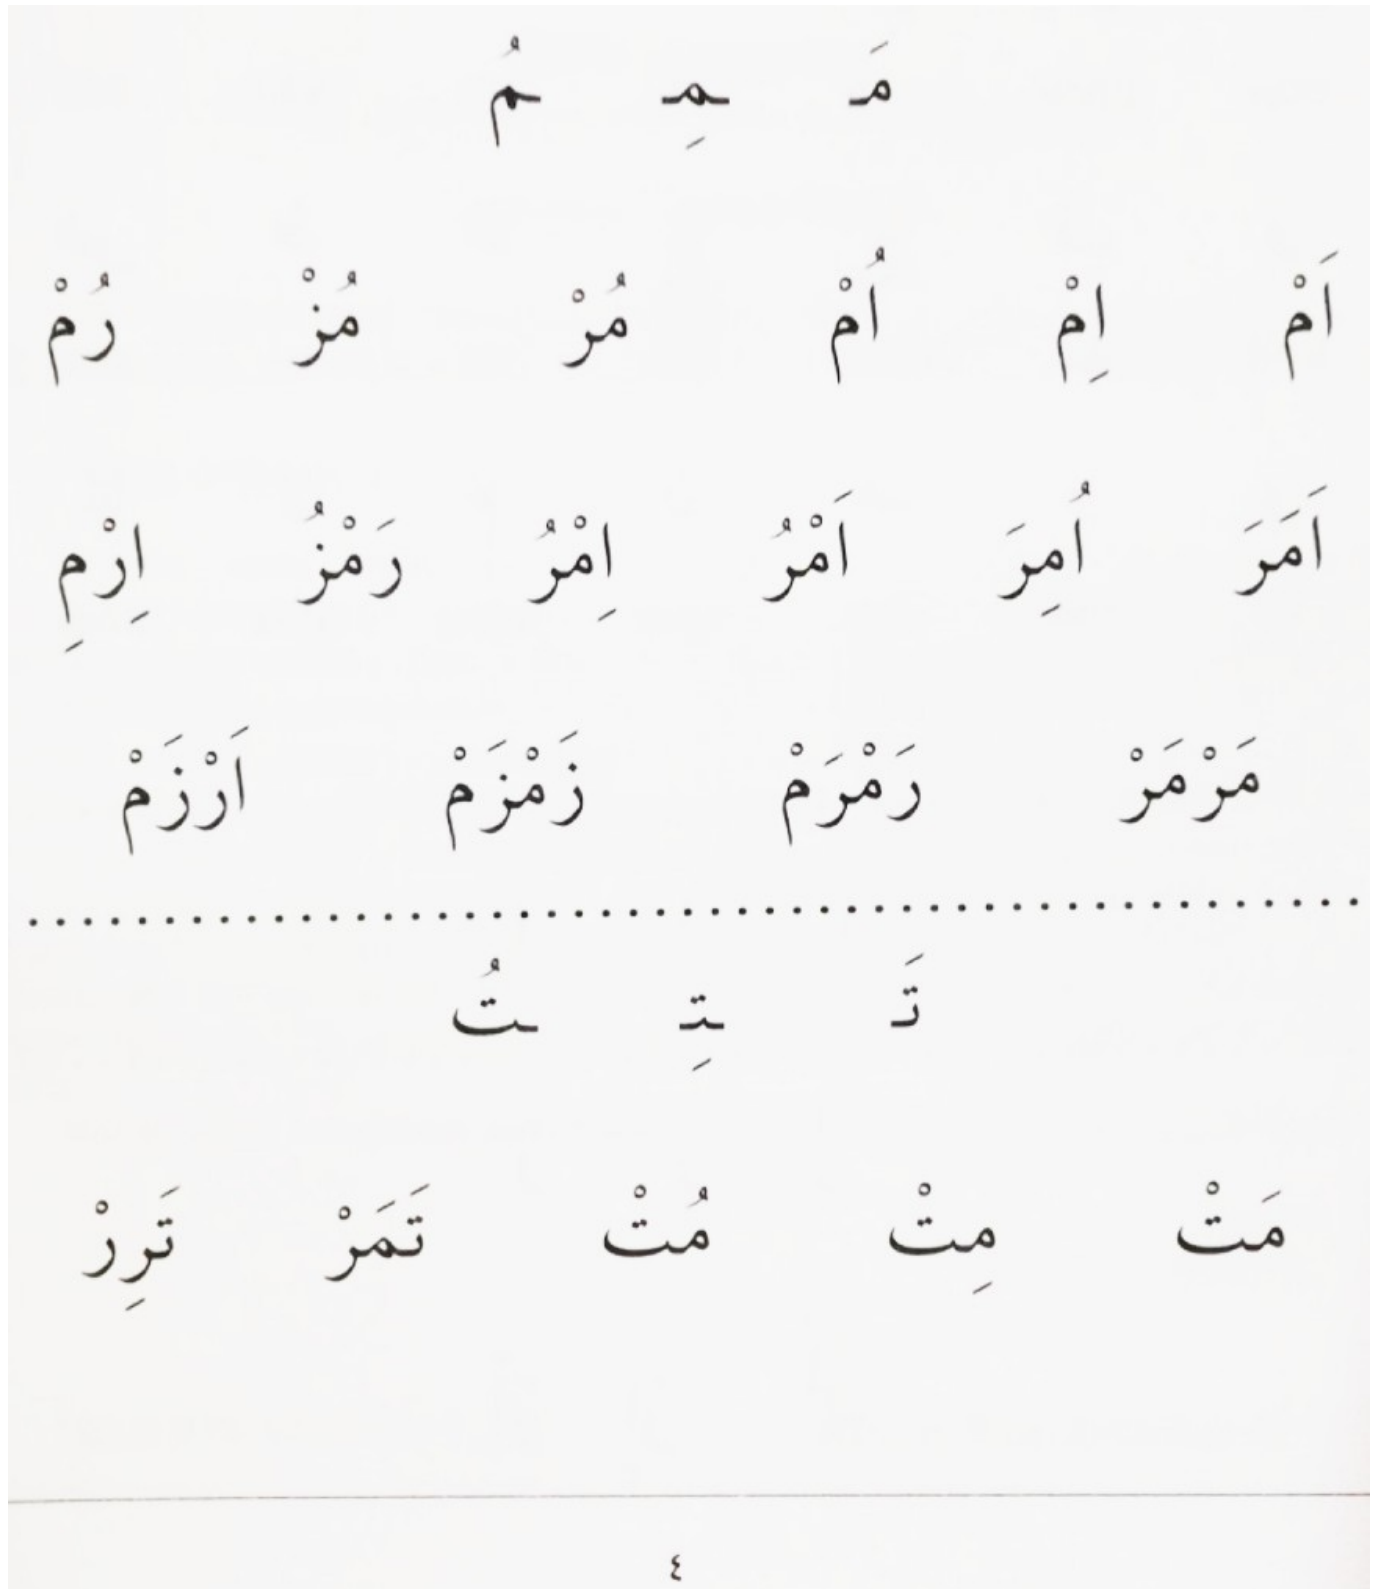 مَـ ـمِـ ـمُ
اَمْ اِمْ اُمْ مُرْ مُزْ رُمْ
اَمَرَ اُمِرَ اَمْرُ اِمْرُ رَمْزُ اِرْمِ
مَرْمَرْ رَمْرَمْ زَمْزَمْ اَرْزَمْ
تَـ ـتِـ ـتُ
مَتْ مِتْ مُتْ تَمَرْ تَرِرْ
٤